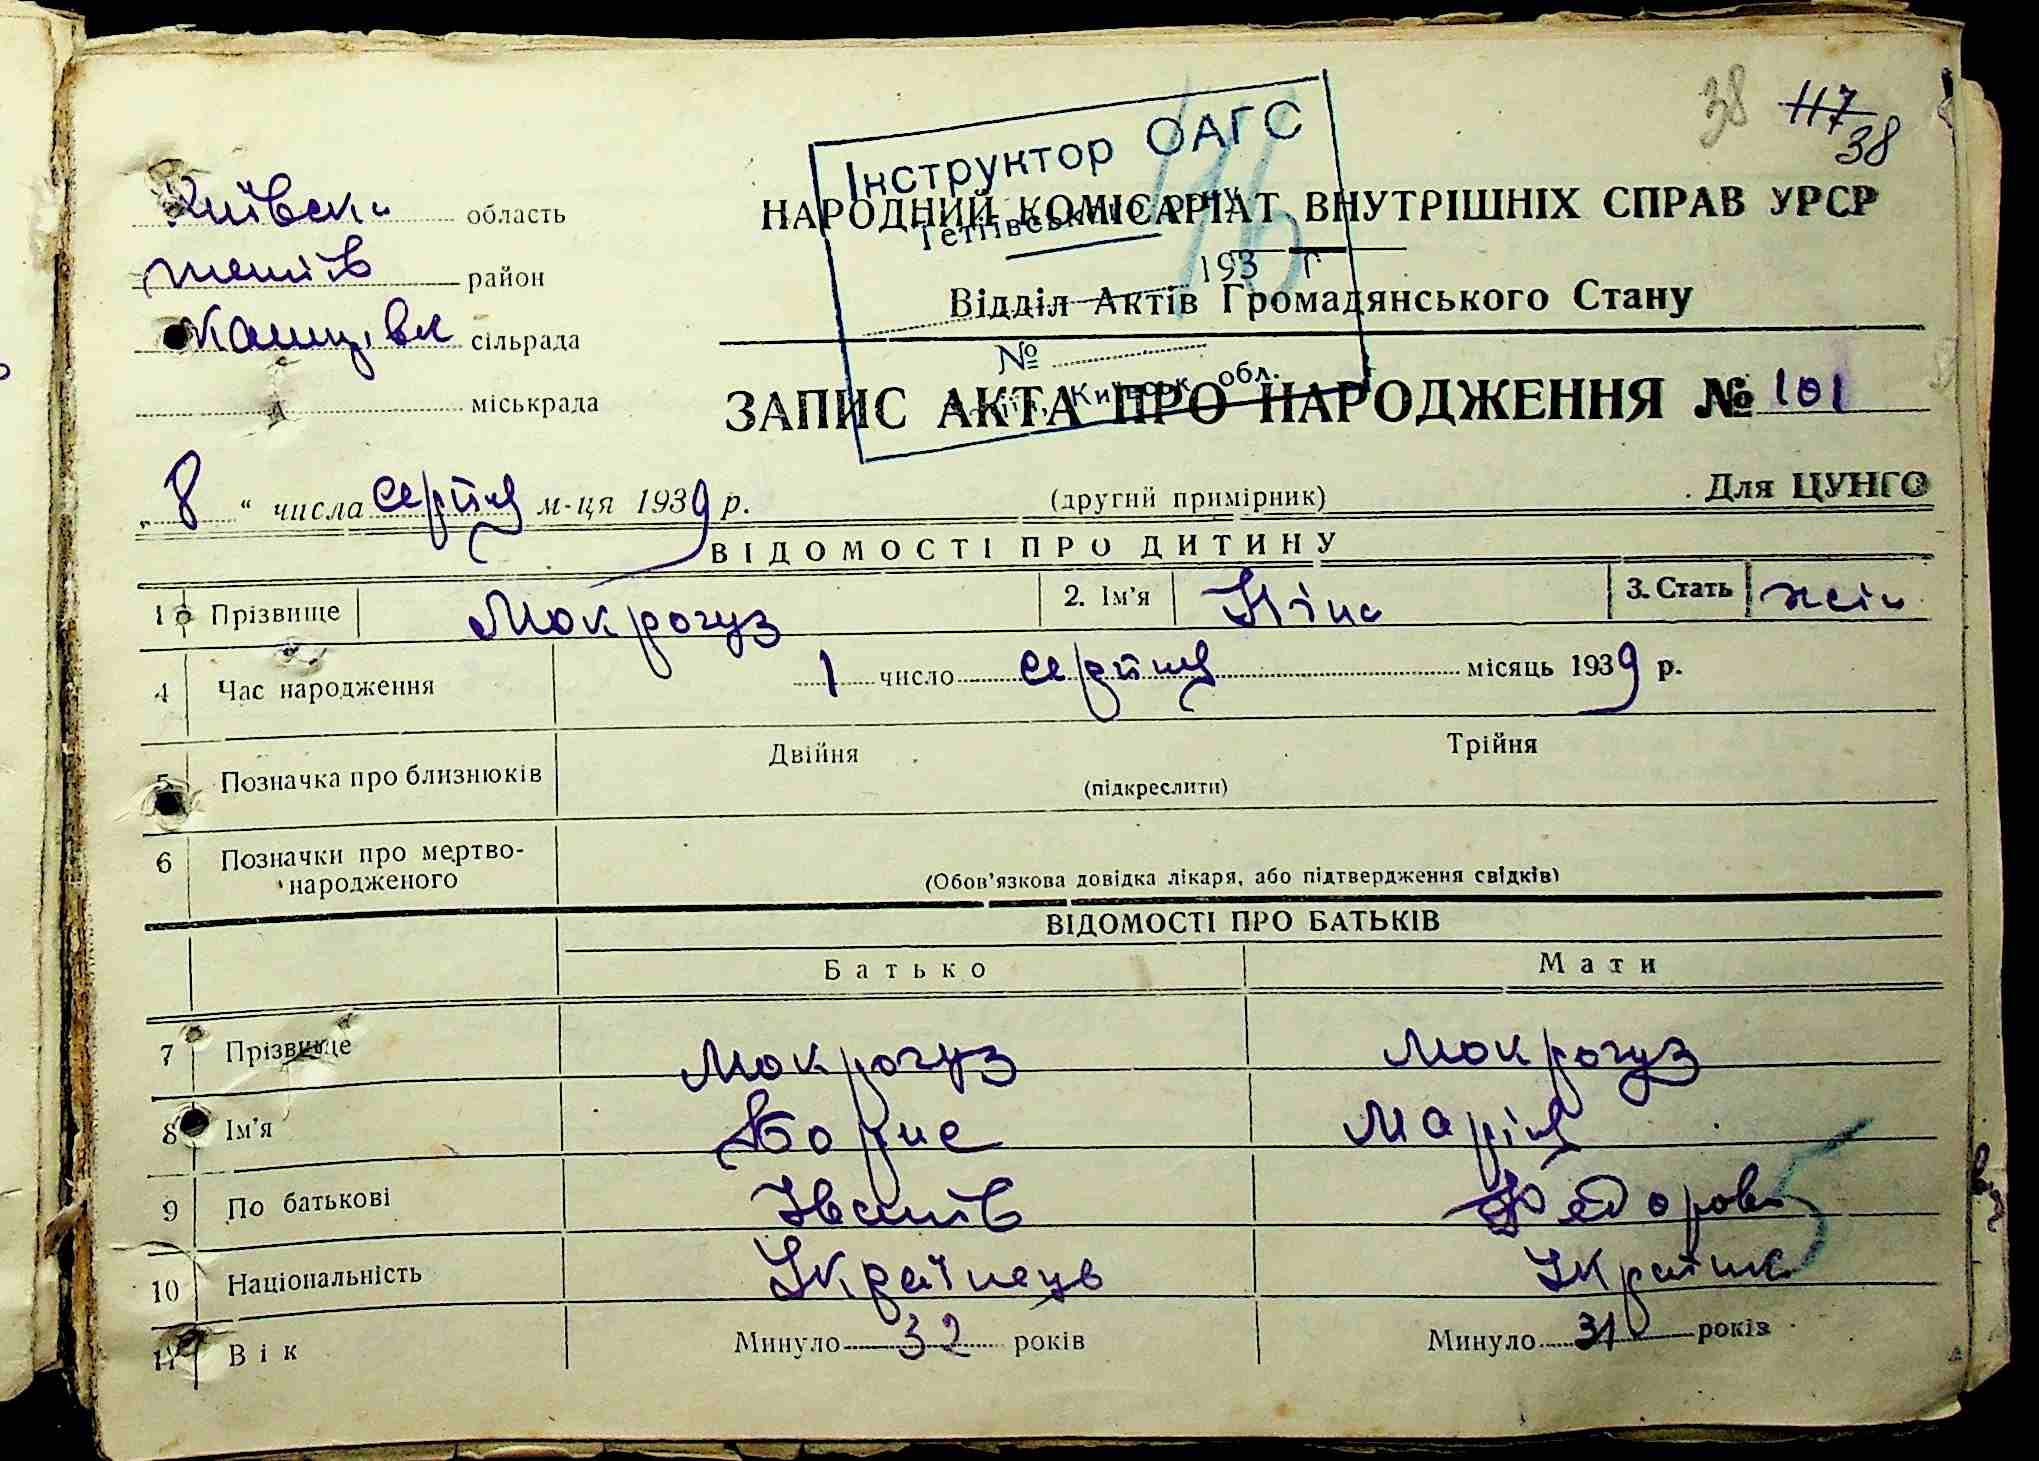 38 117
38
Інструктор ОАГС
Тетіївського
193 г
№
Київськ. обл.
116
Київськи область
тетів район
Кашпівк сільрада
міськрада
НАРОДНИЙ КОМІСАРІАТ ВНУТРІШНІХ СПРАВ УРСР
Відділ Актів Громадянського Стану
ЗАПИС АКТА ПРО НАРОДЖЕННЯ № 101
„ 8 “ числа серпня м-ця 1939 р. (другий примірник) Для ЦУНГО
ВІДОМОСТІ ПРО ДИТИНУ
1 Прізвище Мокрогуз 2. Ім'я Ніна 3. Стать жін
4 Час народження 1 число серпня місяць 1939 р.
5 Позначка про близнюків Двійня Трійня
(підкреслити)
6 Позначки про мертво-
народженого (Обов'язкова довідка лікаря, або підтвердження свідків)
ВІДОМОСТІ ПРО БАТЬКІВ
Батько Мати
7 Прізвище Мокрогуз Мокрогуз
8 Ім'я Борис Марія
9 По батькові Іванів Федоров
10 Національність Українець Українка
11 Вік Минуло 32 років Минуло 31 років
5